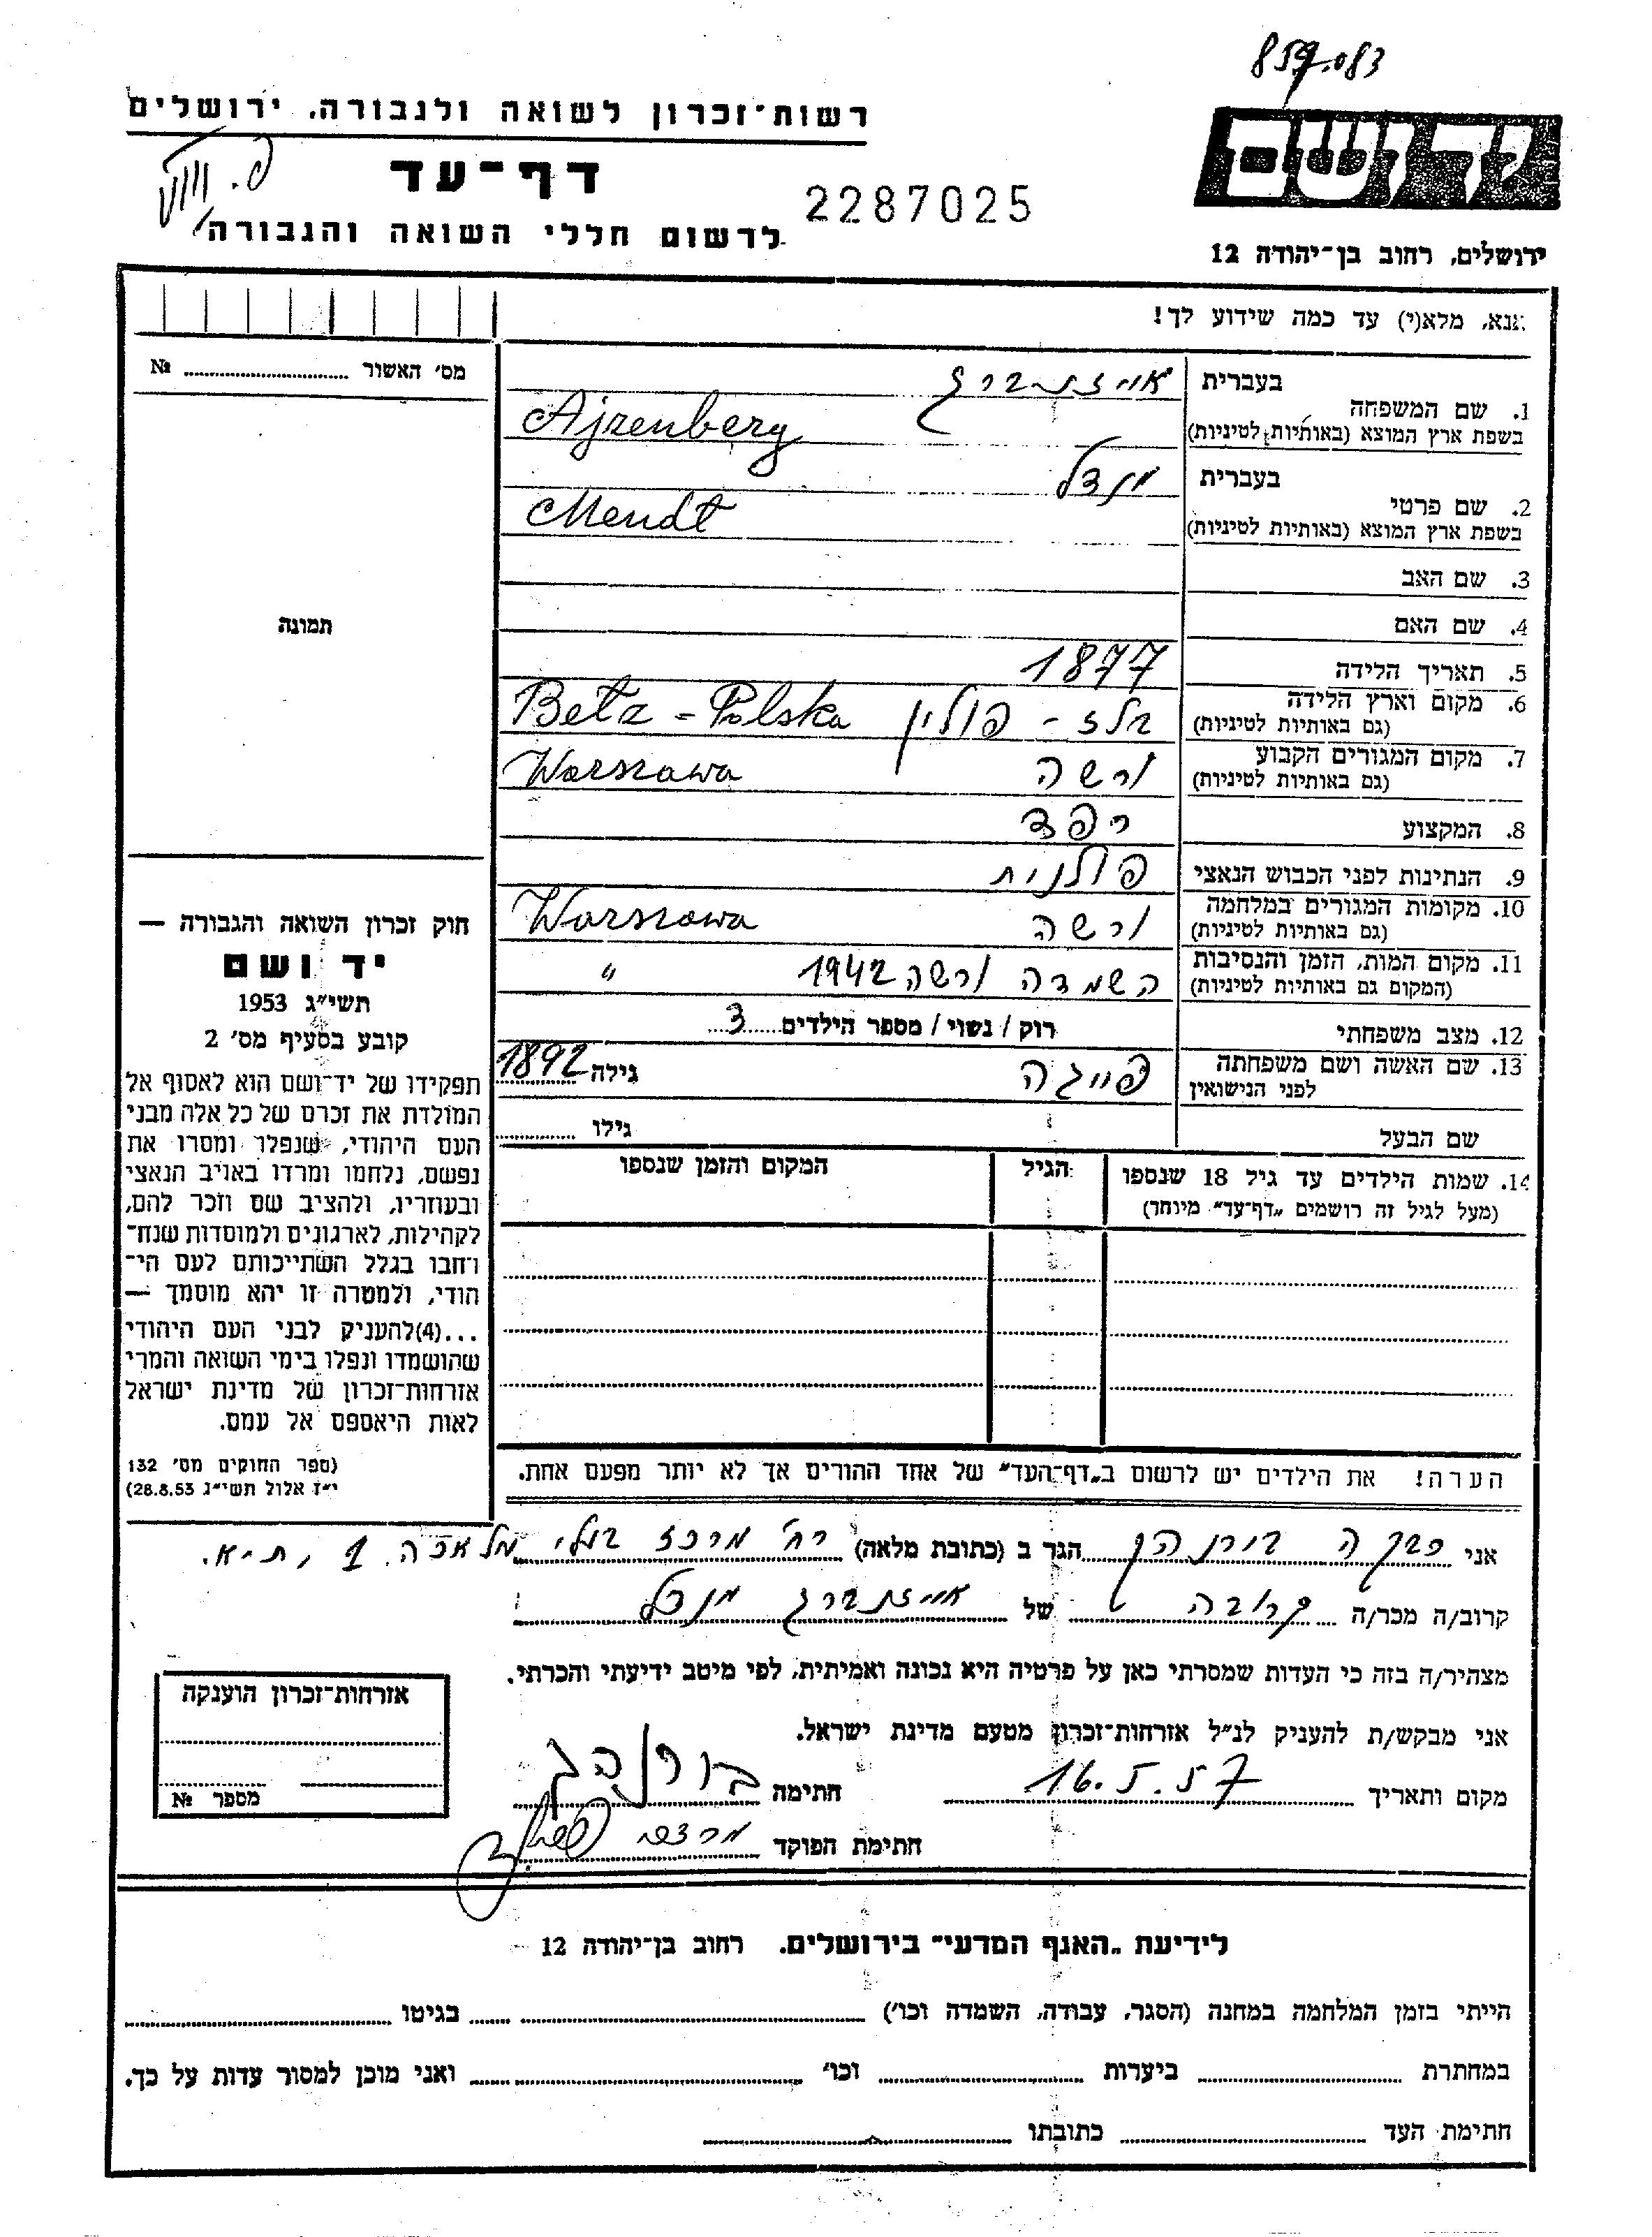 859083
יד ושם
רשות־זכרון לשואה ולגבורה, ירושלים
דף־עד
2287025
לרשום חללי השואה והגבורה
ירושלים, רחוב בן־יהודה 12
אנא, מלא(י) עד כמה שידוע לך!
מס׳ האשור № 
1. שם המשפחה בעברית אייזנברג
בשפת ארץ המוצא (באותיות לטיניות) Ajzenberg
2. שם פרטי בעברית מנדל
בשפת ארץ המוצא (באותיות לטיניות) Mendt
3. שם האב
4. שם האם
תמונה
5. תאריך הלידה 1877
6. מקום וארץ הלידה (גם באותיות לטיניות) בלז - פולין Bełz - Polska
7. מקום המגורים הקבוע (גם באותיות לטיניות) ורשה Warszawa
8. המקצוע רפד
9. הנתינות לפני הכבוש הנאצי פולנית
10. מקומות המגורים במלחמה (גם באותיות לטיניות) ורשה Warszawa
11. מקום המות, הזמן והנסיבות (המקום גם באותיות לטיניות) השמדה ורשה 1942 "
12. מצב משפחתי רוק / נשוי / מספר הילדים 3
13. שם האשה ושם משפחתה לפני הנישואין פייגה גילה 1892
שם הבעל גילו
14. שמות הילדים עד גיל 18 שנספו הגיל המקום והזמן שנספו
(מעל לגיל זה רושמים „דף־עד" מיוחד)
חוק זכרון השואה והגבורה —
יד ושם
תשי״ג 1953
קובע בסעיף מס׳ 2
תפקידו של יד־ושם הוא לאסוף אל
המולדת את זכרם של כל אלה מבני
העם היהודי, שנפלו ומסרו את
נפשם, נלחמו ומרדו באויב הנאצי
ובעוזריו, ולהציב שם וזכר להם,
לקהילות, לארגונים ולמוסדות שנח־
רבו בגלל השתייכותם לעם הי־
הודי, ולמטרה זו יהא מוסמך —
...(4)להעניק לבני העם היהודי
שהושמדו ונפלו בימי השואה והמרי
אזרחות־זכרון של מדינת ישראל
לאות היאספם אל עמם.
(ספר החוקים מס׳ 132
י״ז אלול תשי״ג 28.8.53)
הערה! את הילדים יש לרשום ב„דף־העד" של אחד ההורים אך לא יותר מפעם אחת.
אני רבקה הגר ב (כתובת מלאה) רח׳ מרכז בעלי מלאכה 1, ת״א.
קרוב/ה מכר/ה קרובה של אייזנברג מנדל
מצהיר/ה בזה כי העדות שמסרתי כאן על פרטיה היא נכונה ואמיתית, לפי מיטב ידיעתי והכרתי.
אני מבקש/ת להעניק לנ״ל אזרחות־זכרון מטעם מדינת ישראל.
מקום ותאריך 16.5.57 חתימה
חתימת הפוקד
אזרחות־זכרון הוענקה
מספר №
לידיעת „האגף המדעי" בירושלים. רחוב בן־יהודה 12
הייתי בזמן המלחמה במחנה (הסגר, עבודה, השמדה וכו׳) בגיטו
במחתרת ביערות וכו׳ ואני מוכן למסור עדות על כך.
חתימת העד כתובתו